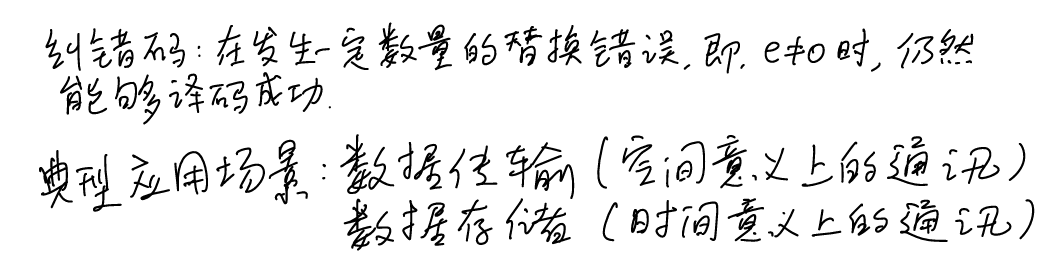 纠错码:在发生一定数量的替换错误,即,e≠0时,仍然
能够译码成功.
典型应用场景:数据传输(空间意义上的通讯)
数据存储(时间意义上的通讯)